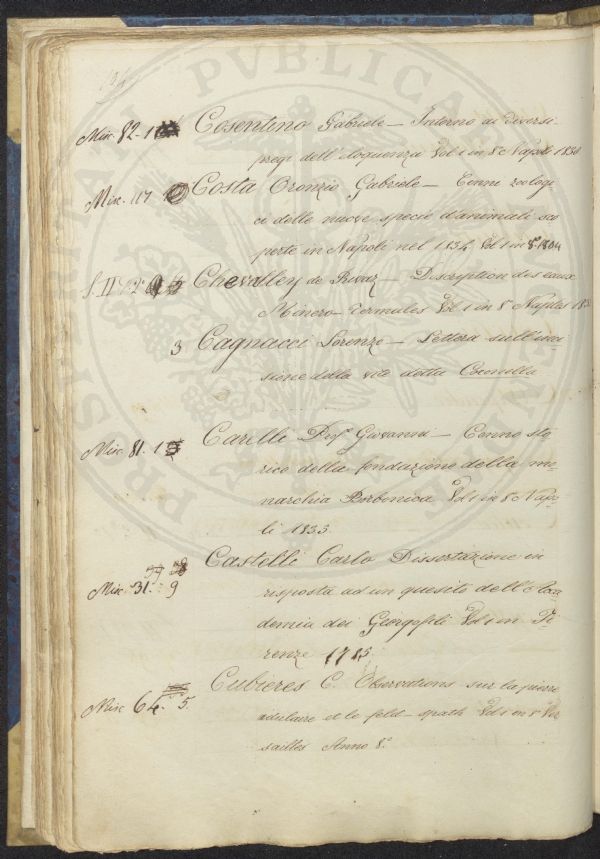 Misc. 82. 1 Cosentino Gabriele — Intorno ai diversi
pregi dell'eloquenza Vol 1 in 8° Napoli 1830
Misc. 117 Costa Oronzio Gabriele — Cenni zoologi
ci delle nuove specie d'animali sco
perte in Napoli nel 1834 Vol 1 in 8°
Chevalley de Rivaz — Description des eaux
Minero-Termales Vol 1 in 8° Naples
3 Cagnacci Lorenzo — Lettera sull'
sione della vite detta Coronella
Misc. 81. 1 Carelli Prof. Giovanni — Cenno sto
rico della fondazione della mo
narchia Borbonica Vol 1 in 8° Napo
li 1835
Castelli Carlo Dissertazione in
Misc. 31. 9 risposta ad un quesito dell'Acca
demia dei Georgofili Vol 1 in Fi
renze
Cubieres C. Observations sur la pierre
Misc 64. 5. adulaire et le feld-spath Vol 1 in 8° Ver
sailles Anno 8°
PUBLICA